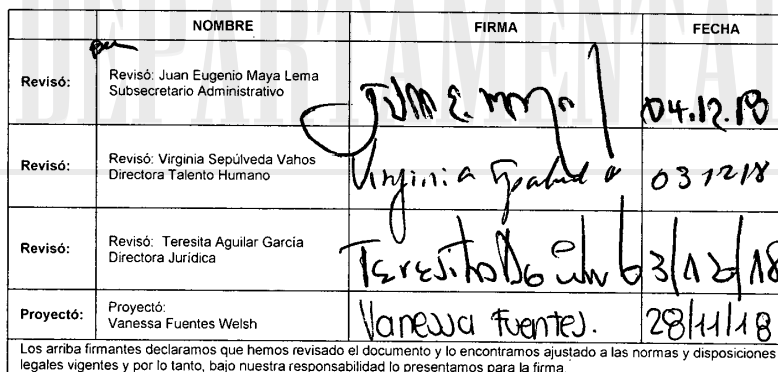 DEPARTAMENTAL
NOMBRE FIRMA FECHA
Revisó: Revisó: Juan Eugenio Maya Lema
Subsecretario Administrativo
04.12.18
Revisó: Revisó: Virginia Sepúlveda Vahos
Directora Talento Humano
Virginia 031218
Revisó: Revisó: Teresita Aguilar García
Directora Jurídica
Teresita 3/12/18
Proyectó: Proyectó:
Vanessa Fuentes Welsh
Vanessa Fuentes. 28/11/18
Los arriba firmantes declaramos que hemos revisado el documento y lo encontramos ajustado a las normas y disposiciones
legales vigentes y por lo tanto, bajo nuestra responsabilidad lo presentamos para la firma.